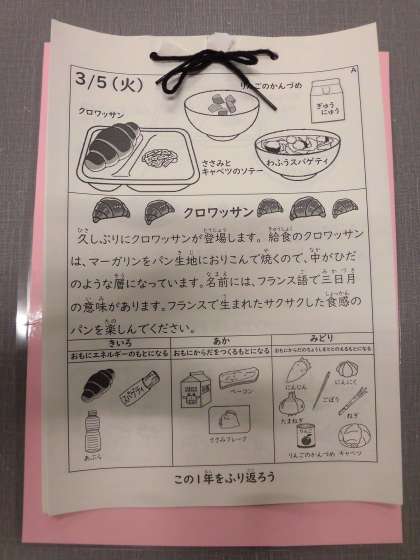 A
3/5(火)
りんごのかんづめ
ぎゅう
にゅう
クロワッサン
ささみと
キャベツのソテー
わふうスパゲティ
クロワッサン
久しぶりにクロワッサンが登場します。給食のクロワッサン
は、マーガリンをパン生地におりこんで焼くので、中がひだ
のような層になっています。名前には、フランス語で三日月
の意味があります。フランスで生まれたサクサクした食感の
パンを楽しんでください。
きいろ
おもにエネルギーのもとになる
あか
おもにからだをつくるもとになる
みどり
おもにからだのちょうしをととのえるもとになる
スパゲティ
あぶら
ベーコン
ささみフレーク
にんじん
にんにく
ごぼう
たまねぎ
ねぎ
りんご
りんごのかんづめ
キャベツ
この1年をふり返ろう